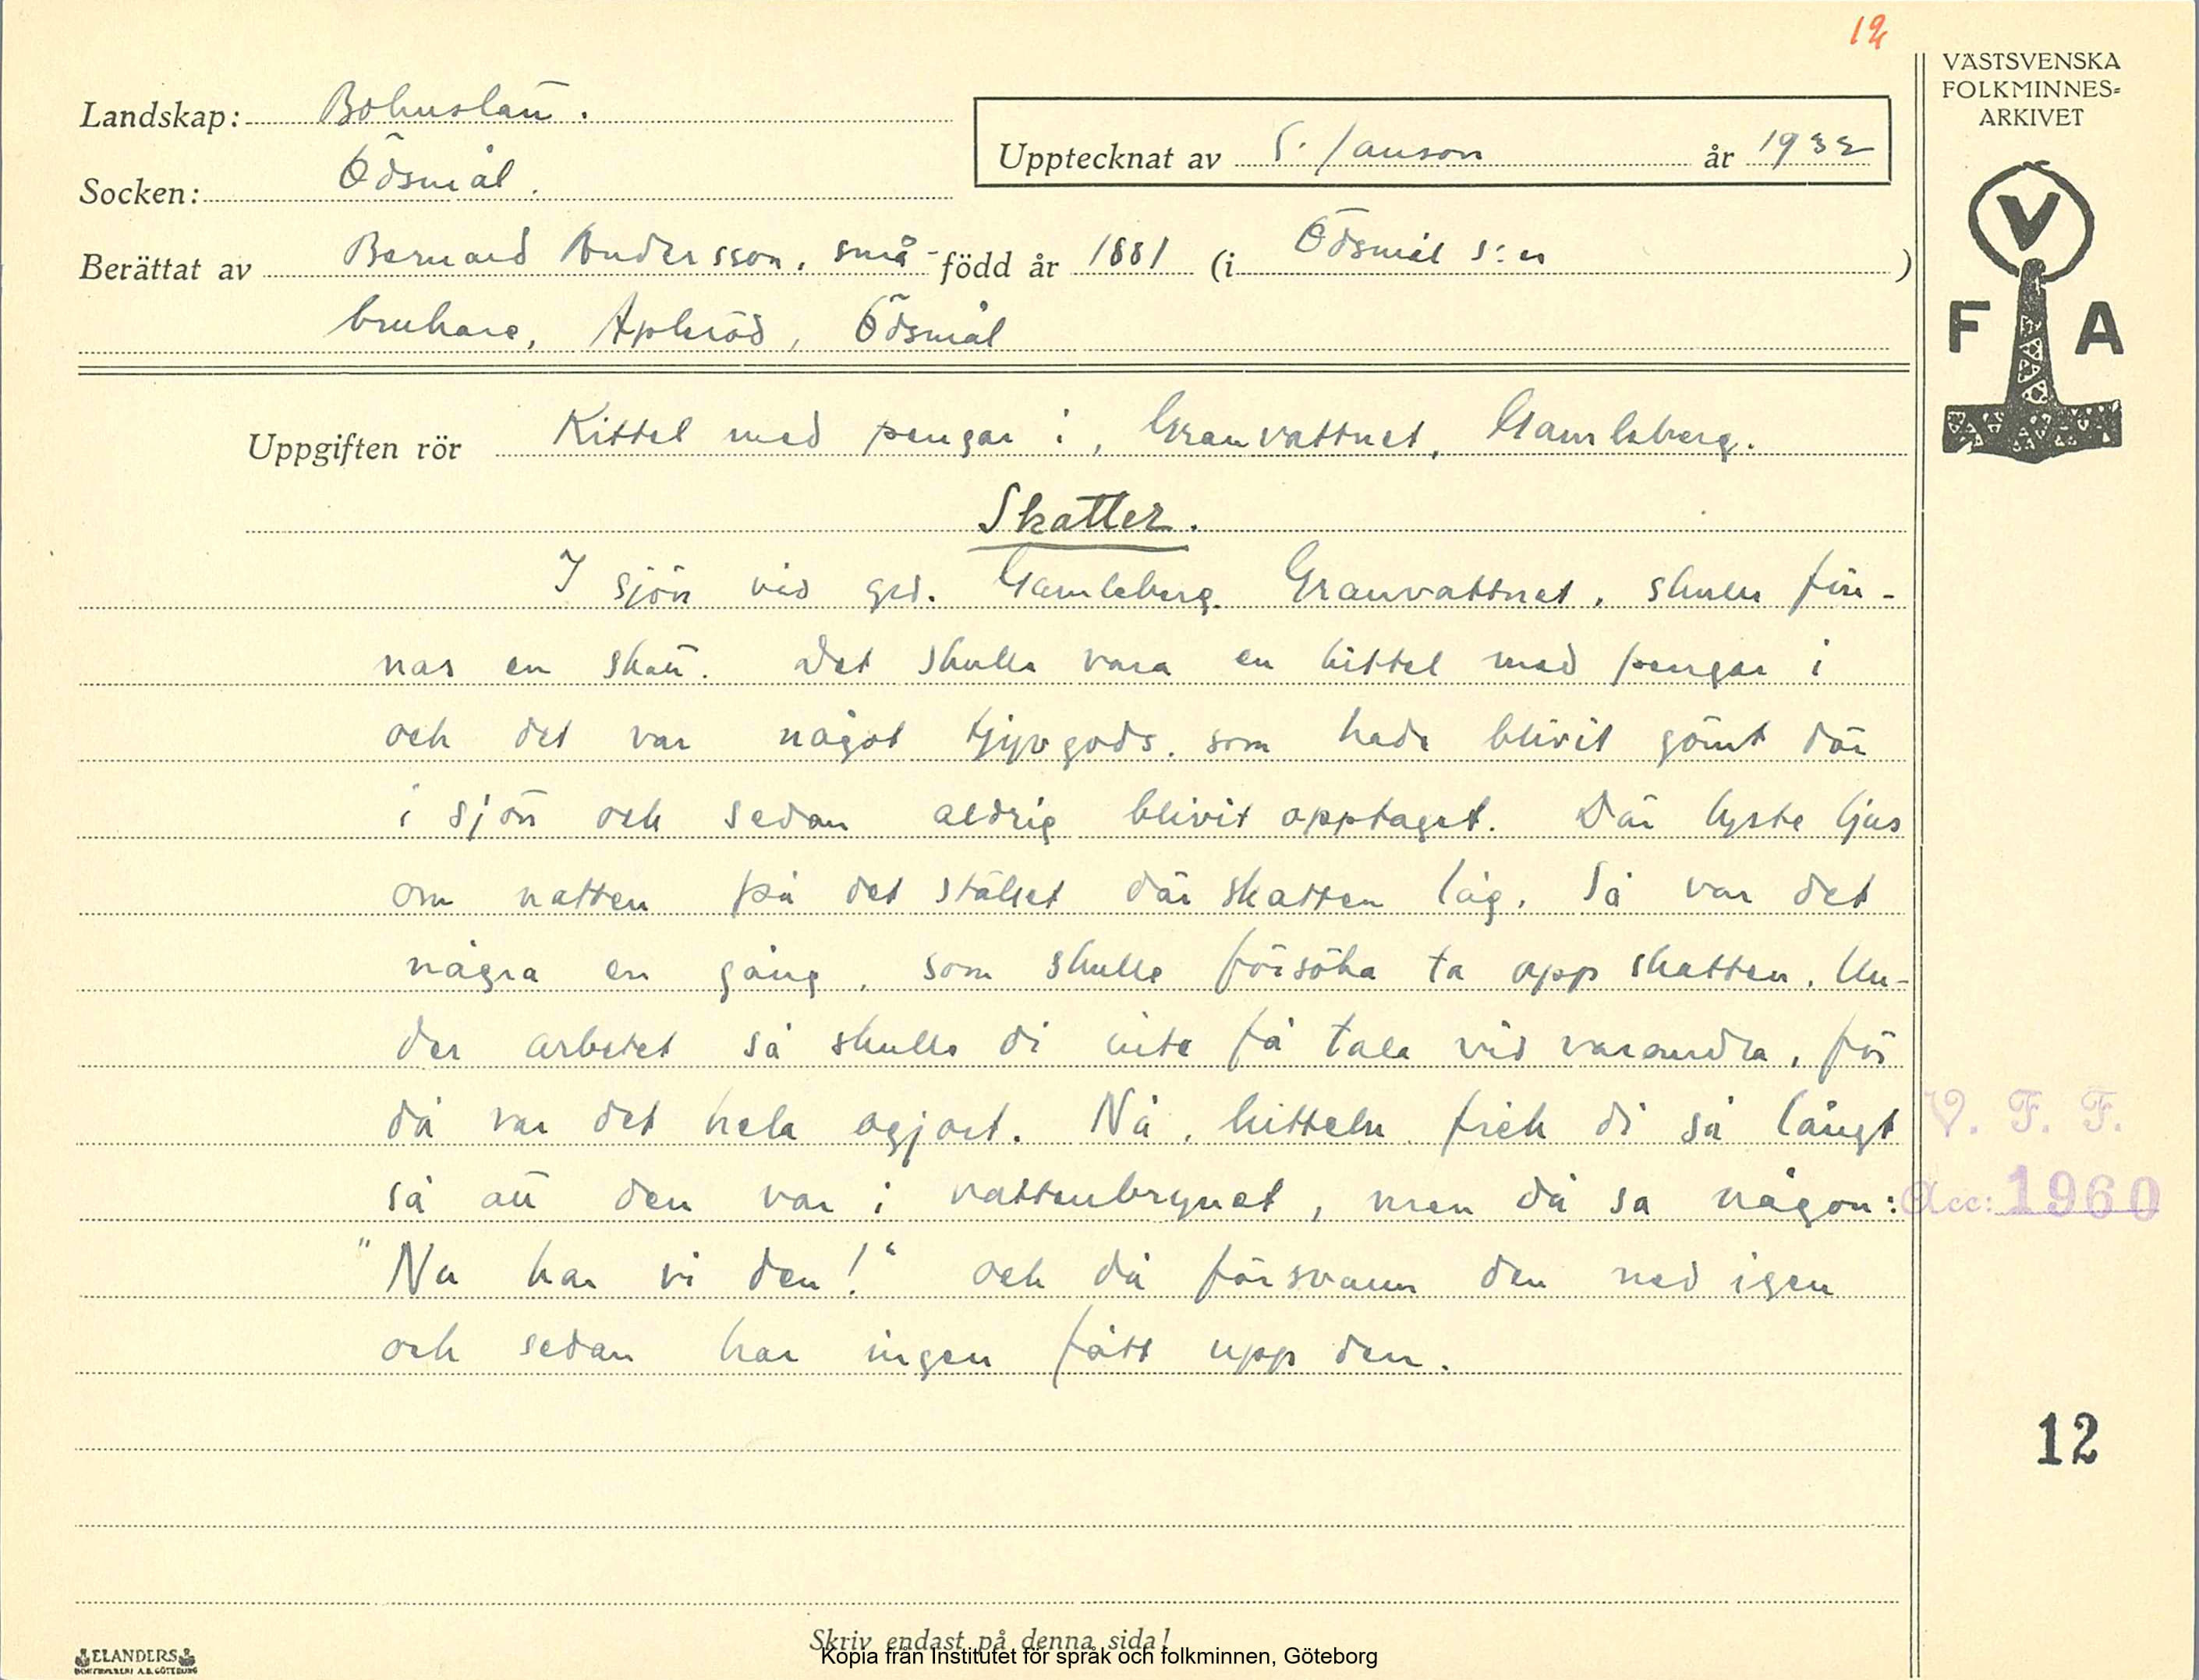 12
VÄSTSVENSKA
FOLKMINNES=
ARKIVET
Landskap: Bohuslän.
Upptecknat av S. Janson år 1932
Socken: Ödsmål.
Berättat av Bernard Andersson, små- född år 1881 (i Ödsmål s:n )
brukare, Apleröd, Ödsmål
V
F A
Uppgiften rör Kittel med pengar i, Granvattnet, Gamleberg.
Skatter.
I sjön vid gd. Gamleberg. Granvattnet, skulle fin-
nas en skatt. Det skulle vara en kittel med pengar i
och det var något tjyvgods, som hade blivit gömt där
i sjön och sedan aldrig blivit opptaget. Där lyste ljus
om natten på det stället där skatten låg. Så var det
några en gång, som skulle försöka ta opp skatten. Un-
der arbetet så skulle di inte få tala vid varandra, för
då var det hela ogjort. Nå, kitteln fick di så långt
så att den var i vattenbrynet, men då sa någon:
"Nu har vi den!" och då försvann den ned igen
och sedan har ingen fått upp den.
V. F. F.
Acc: 1960
12
Skriv endast på denna sida!
Kopia från Institutet för språk och folkminnen, Göteborg
ELANDERS
BOKTRYCKERI A.B. GÖTEBORG